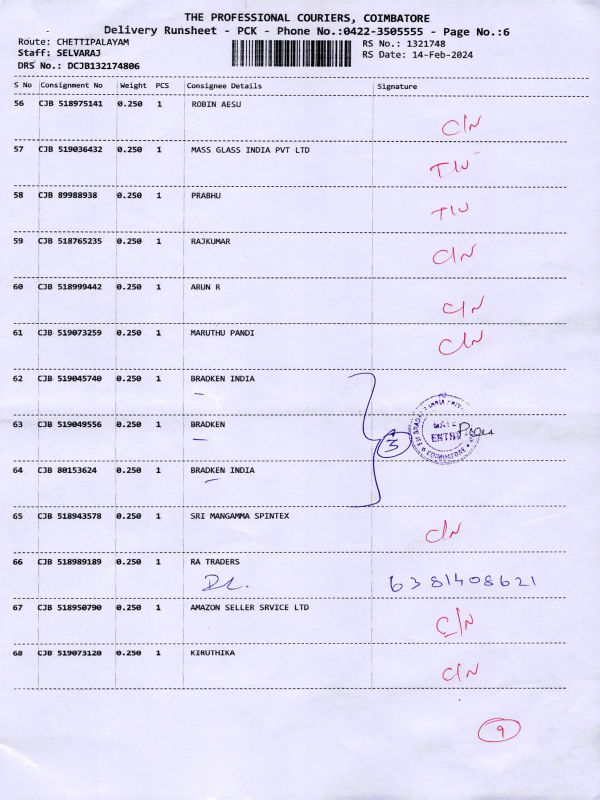 THE PROFESSIONAL COURIERS, COIMBATORE
Delivery Runsheet - PCK - Phone No.:0422-3505555 - Page No.:6
Route: CHETTIPALAYAM RS No.: 1321748
Staff: SELVARAJ RS Date: 14-Feb-2024
DRS No.: DCJB132174806
S No Consignment No Weight PCS Consignee Details Signature
56 CJB 518975141 0.250 1 ROBIN AESU
C/N
57 CJB 519036432 0.250 1 MASS GLASS INDIA PVT LTD
58 CJB 89988938 0.250 1 PRABHU
59 CJB 518765235 0.250 1 RAJKUMAR
C/N
60 CJB 518999442 0.250 1 ARUN R
C/N
61 CJB 519073259 0.250 1 MARUTHU PANDI
C/N
62 CJB 519045740 0.250 1 BRADKEN INDIA
63 CJB 519049556 0.250 1 BRADKEN
3
ENTRY
COIMBATORE
64 CJB 80153624 0.250 1 BRADKEN INDIA
65 CJB 518943578 0.250 1 SRI MANGAMMA SPINTEX
C/N
66 CJB 518989189 0.250 1 RA TRADERS
6381408621
67 CJB 518950790 0.250 1 AMAZON SELLER SRVICE LTD
C/N
68 CJB 519073120 0.250 1 KIRUTHIKA
C/N
9